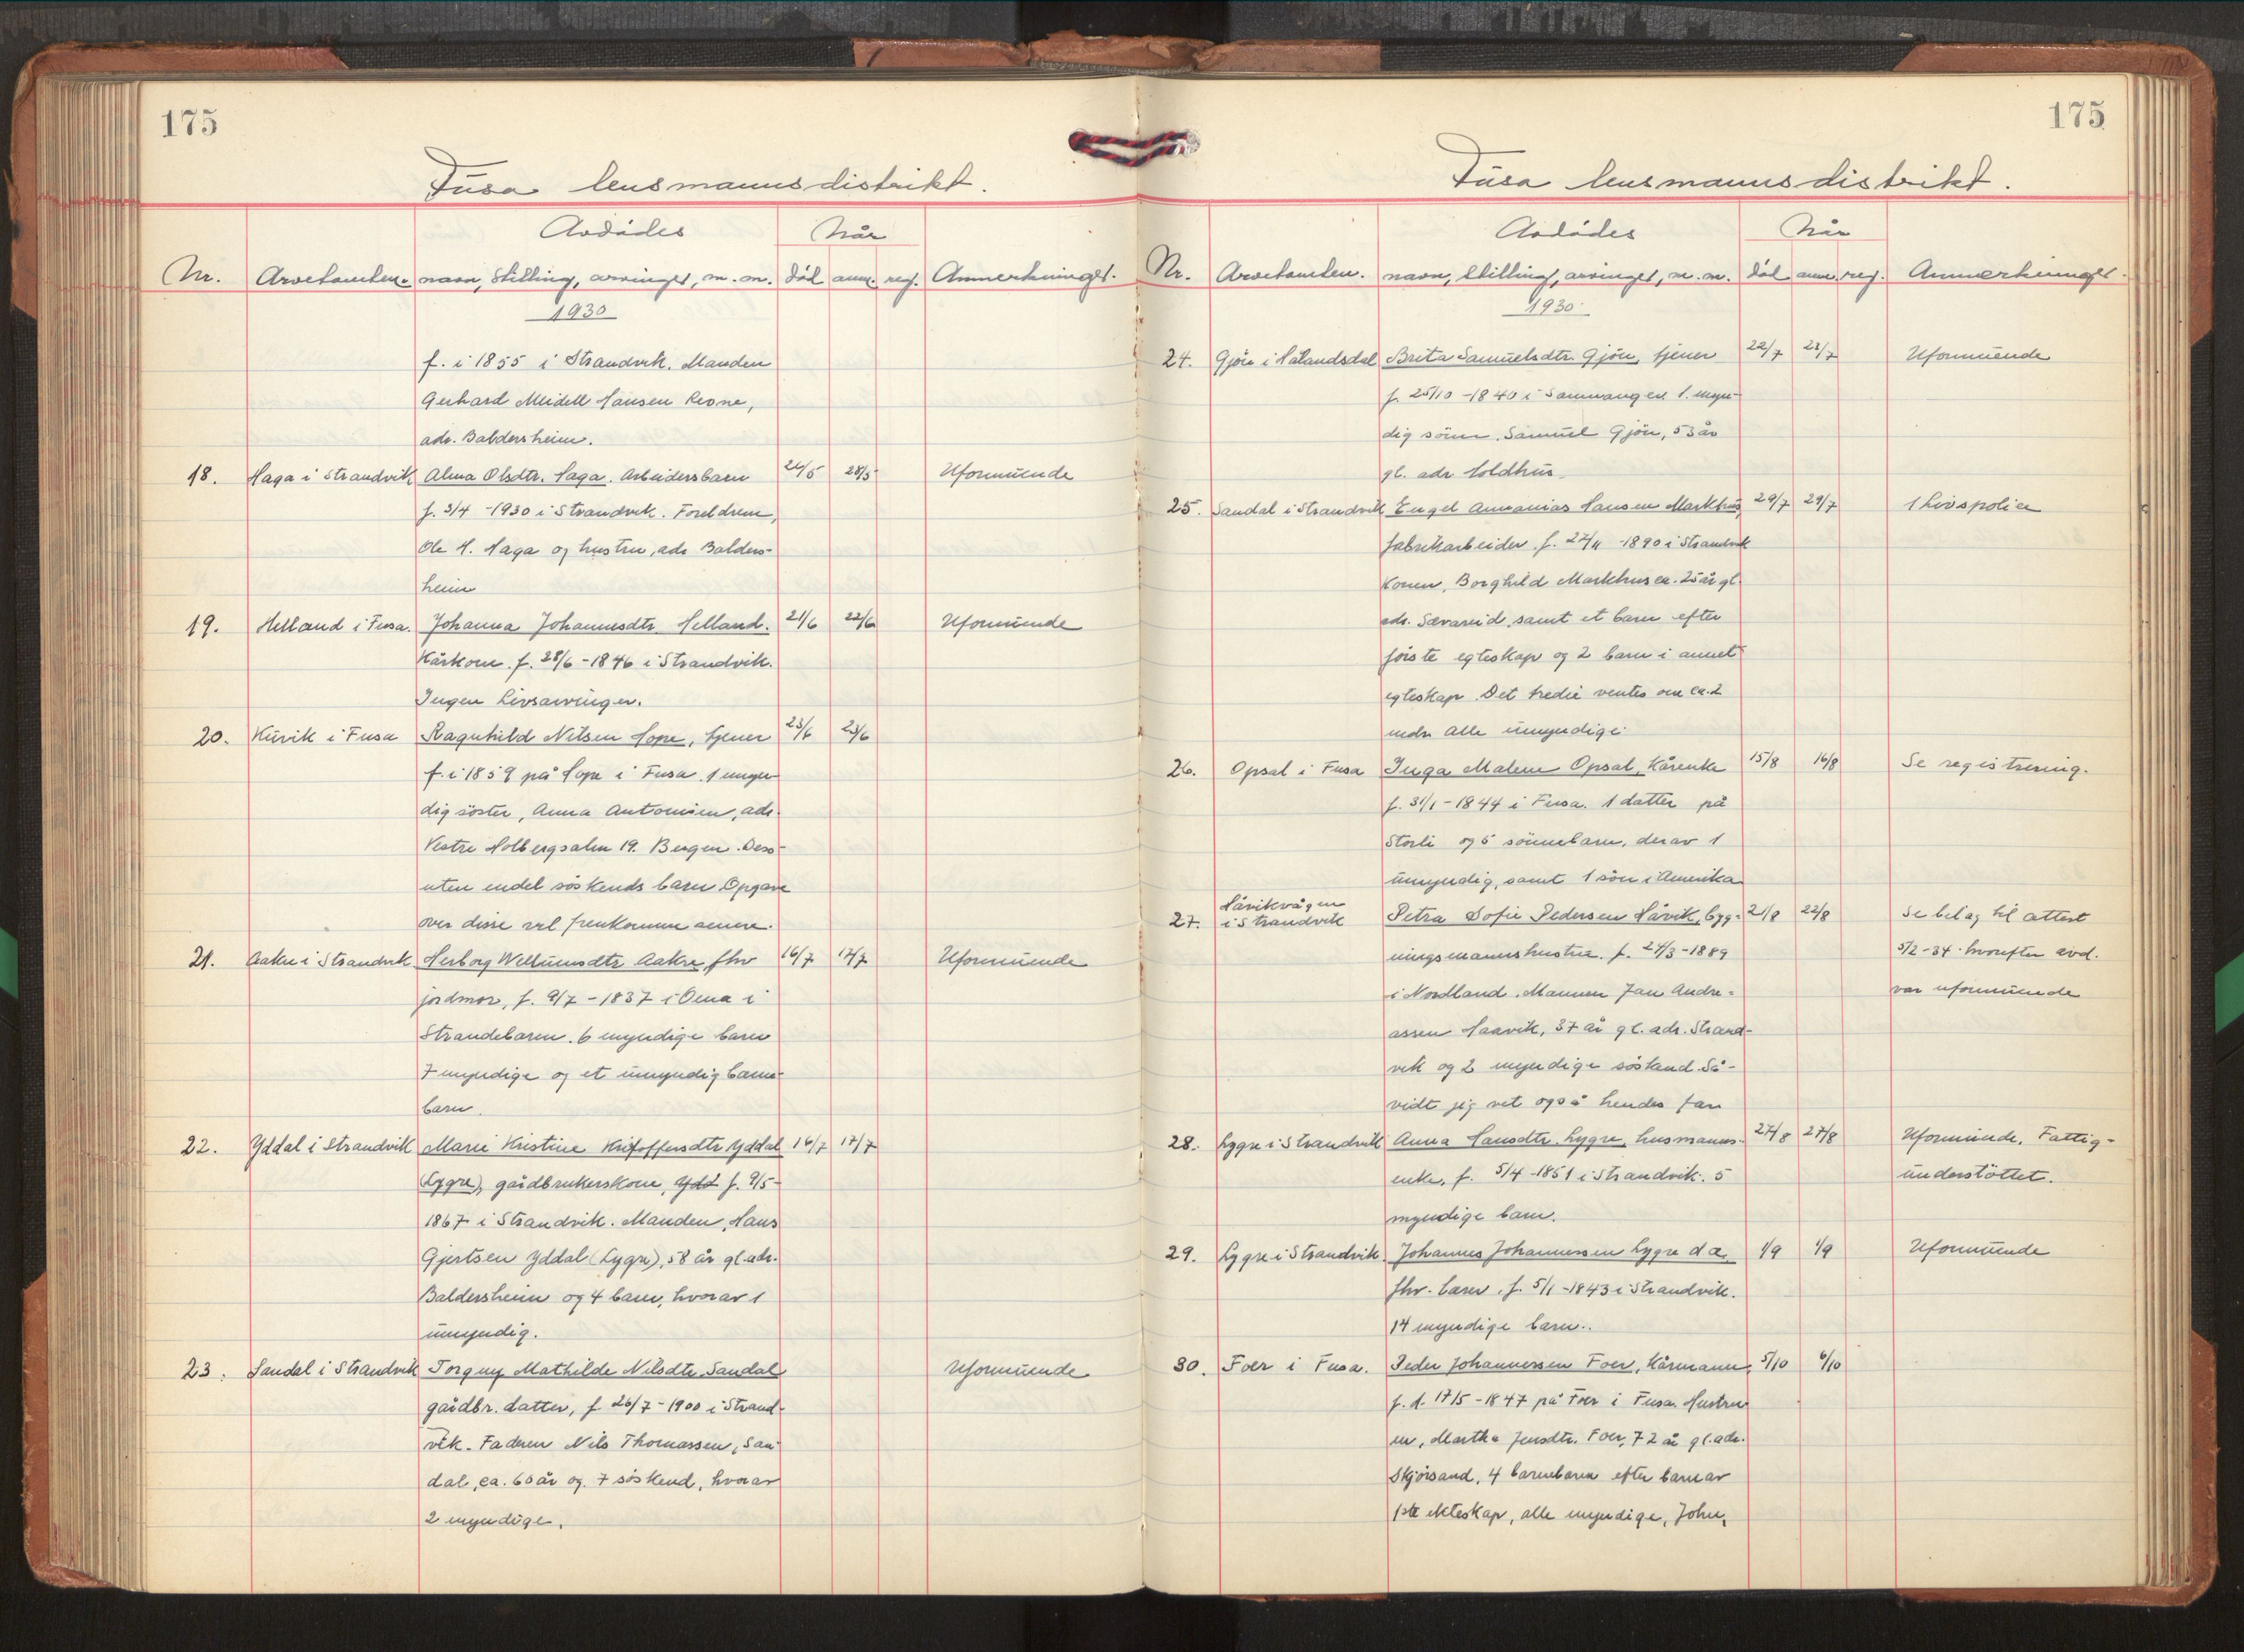 175
Fusa lensmannsdistrikt.
Avdødes
Når
Nr. Arvetomten. navn, Stilling, arvinger, m.m. død anm. reg. Anmerkninger.
1930
f. i 1855 i Strandvik. Manden
Gerhard Meidell Hansen Revne,
adr. Baldersheim.
18. Haga i Strandvik Alma Olsdtr. Haga. Arbeidersbarn 24/5 28/5 Uformuende
f. 3/4 -1930 i Strandvik. Foreldrene,
Ole H. Haga og hustru, adr Balders-
heim
19. Helland i Fusa. Johanna Johannesdtr Helland. 21/6 22/6 Uformuende
Kårkone. f. 28/6 -1846 i Strandvik.
Ingen Livsarvinger.
20. Kuvik i Fusa Ragnhild Nilsen Hope, tjener 23/6 23/6
f. i 1859 på Hope i Fusa. 1 myn-
dig søster, Anna Antonisen, adr.
Vestre Holbergsalm 19. Bergen. Dess-
uten endel søskends barn. Opgave
over disse vil fremkomme senere.
21. Aakre i Strandvik Herborg Wellumsdtr Aakre fhv 16/7 17/7 Uformuende
jordmor, f. 9/7 -1837 i Oma i
Strandebarm. 6 myndige barn
7 myndige og et umyndig barne-
barn.
22. Yddal i Strandvik Marie Kristine Kristoffersdtr Yddal 16/7 17/7
(Lygre), gårdbrukerskone, Ydd f. 9/5-
1867 i Strandvik. Manden, Hans
Gjertsen Yddal (Lygre), 58 år gl. adr.
Baldersheim og 4 barn, hvorav 1
umyndig.
23. Sandal i Strandvik Torguny Mathilde Nilsdtr. Sandal Uformuende
gårdbr. datter, f 26/7 -1900 i Strand-
vik. Faderen Nils Thomassen, San-
dal, ca. 60 år og 7 søskend, hvorav
2 myndige.
175
Fusa lensmannsdistrikt.
Avdødes
Når
Nr. Arvetomten. navn, Stilling, arvinger, m.m. død anm. reg. Anmerkninger.
1930
24. Gjøn i Hålandsdal Brita Samuelsdtr. Gjøn, tjener 22/7 23/7 Uformuende
f. 25/10 -1840 i Samnanger. 1. myn-
dig sønn. Samuel Gjøn, 53 år
gl. adr Holdhus
25. Sandal i Strandvik Engel Annanias Hansen Markhus, 29/7 29/7 1 Livspolice
fabrikarbeider. f. 22/11 -1890 i Strandvik
Konen, Borghild Markhus ca. 25 år gl.
adr. Sævareid, samt et barn efter
første egteskap og 2 barn i annet
egteskap. Det tredie ventes om ca. 2
mdr. Alle umyndige
26. Opsal i Fusa Inga Malene Opsal, Kårenke 15/8 16/8 Se registrering.
f. 31/1 -1844 i Fusa. 1 datter på
Storli og 5 sønnebarn, derav 1
umyndig, samt 1 søn i Amerika
Håvikvågen
27. i Strandvik Petra Sofie Pedersen Håvik, byg- 21/8 22/8 Se bilag til attest
ningsmannshustru. f. 24/3 -1889 5/2-34. hvorefter avd.
i Nordland. Mannen Jan Andre- var uformuende
assen Haavik, 37 år gl. adr. Strand-
vik og 2 myndige søskend. Så-
vidt jeg vet også hendes far
28. Lygre i Strandvik Anna Hansdtr. Lygre, husmanns- 27/8 27/8 Uformuende. Fattig-
enke, f. 5/4 -1851 i Strandvik. 5 understøttet.
myndige barn.
29. Lygre i Strandvik. Johannes Johannessen Lygre d æ. 1/9 1/9 Uformuende
fhv. lærer, f. 5/1 -1843 i Strandvik.
14 myndige barn.
30. Foer i Fusa. Peder Johannessen Foer, Kårmann, 5/10 6/10
f. d. 17/5 -1847 på Foer i Fusa. Hustru-
en, Martha Jensdtr. Foer, 72 år gl. adr.
Skjørsand, 4 barnebarn efter barn av
1ste ekteskap, alle myndige, John,